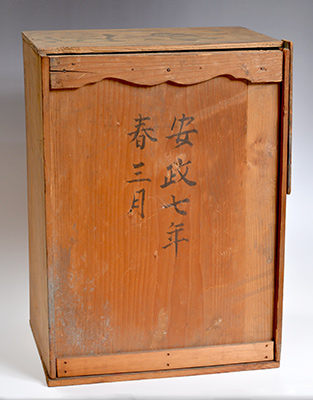 安政七年
春三月